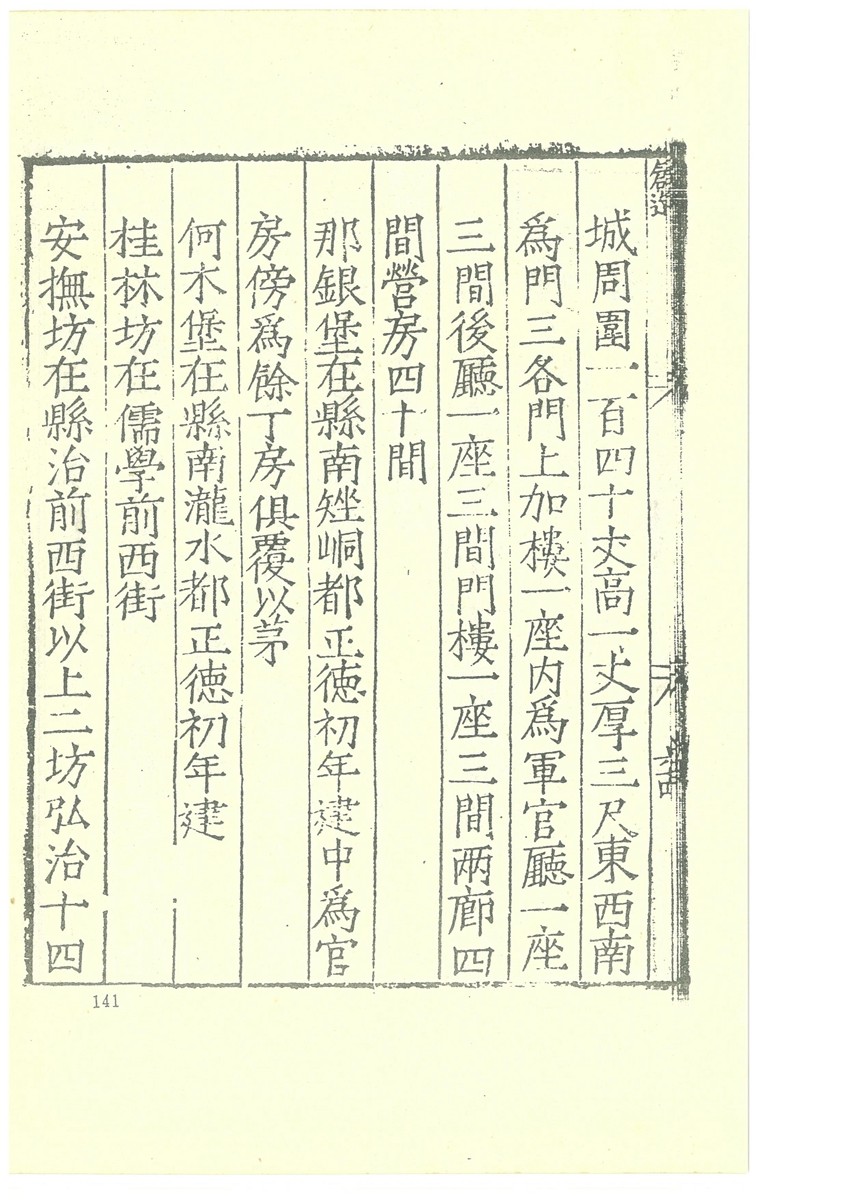 城周圍一百四十丈高一丈厚三尺東西南
爲門三各門上加樓一座内爲軍官廳一座
三間後廳一座三間門樓一座三間兩廊四
間營房四十間
那銀堡在縣南矬峒都正德初年建中爲官
房傍爲餘丁房俱覆以茅
何木堡在縣南瀧水都正德初年建
桂林坊在儒學前西街
安撫坊在縣治前西街以上二坊弘治十四
141